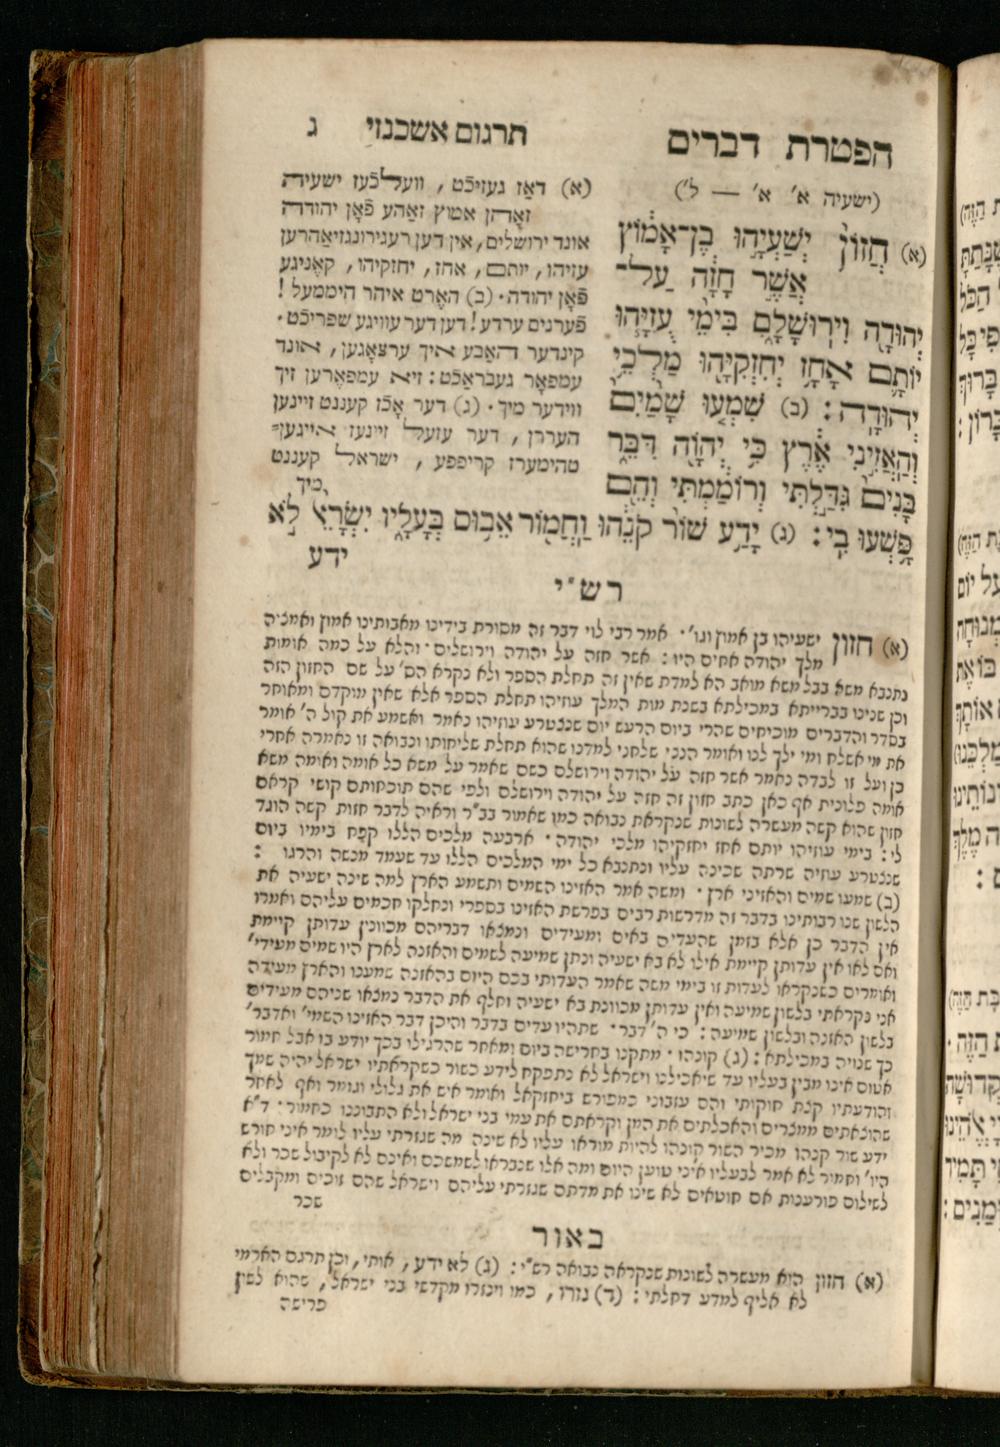 הפטרת דברים
(ישעיה א' א' — ל')
(א) חֲזוֹן יְשַׁעְיָהוּ בֶן־אָמוֹץ
אֲשֶׁר חָזָה עַל־
יְהוּדָה וִירוּשָׁלָםִ בִּימֵי עֻזִּיָּהוּ
יוֹתָם אָחָז יְחִזְקִיָּהוּ מַלְכֵי
יְהוּדָה: (ב) שִׁמְעוּ שָׁמַיִם
וְהַאֲזִינִי אֶרֶץ כִּי יְהוָֹה דִּבֵּר
בָּנִים גִּדַּלְתִּי וְרוֹמַמְתִּי וְהֵם
פָּשְׁעוּ בִי: (ג) יָדַע שׁוֹר קֹנֵהוּ וַחֲמוֹר אֵבוּס בְּעָלָיו יִשְׂרָאֵל לֹא
ידע
תרגום אשכנזי ג
(א) דאַז געזיכֿט, וועלכֿעז ישעיה
זאָהן אמוץ זאַהע פֿאָן יהודה
אונד ירושלים, אין דען רעגירונגזיאַהרען
עזיהו, יותם, אחז, יחזקיהו, קאָניגע
פֿאָן יהודה. (ב) האָרט איהר היממעל!
פֿערנים ערדע! דען דער עוויגע שפריכֿט.
קינדער האַבע איך ערצאָגען, אונד
עמפאָר געבראַכֿט: זיא עמפאָרען זיך
ווידער מיך. (ג) דער אָכֿז קעננט זיינען
העררן, דער עזעל זיינעז אייגען־
טהימערז קריפפע, ישראל קעננט
מיך
רש"י
(א) חזון ישעיהו בן אמוץ וגו'. אמר רבי לוי דבר זה מסורת בידינו מאבותינו אמוץ ואמציה
מלך יהודה אחים היו: אשר חזה על יהודה וירושלים. והלא על כמה אומות
נתנבא משא בבל משא מואב הא למדת שאין זה תחלת הספר ולא נקרא הס' על שם החזון הזה
וכן שנינו בברייתא במכילתא בשנת מות המלך עוזיהו תחלת הספר אלא שאין מוקדם ומאוחר
בסדר והדברים מוכיחים שהרי ביום הרעש יום שנצטרע עוזיהו נאמר ואשמע את קול ה' אומר
את מי אשלח ומי ילך לנו ואומר הנני שלחני למדנו שהוא תחלת שליחותו ונבואה זו נאמרה אחרי
כן ועל זו לבדה נאמר אשר חזה על יהודה וירושלם כשם שאמר על משא כל אומה ואומה משא
אומה פלונית אף כאן כתב חזון זה חזה על יהודה וירושלם ולפי שהם תוכחותם קושי קראם
חזון שהוא קשה מעשרה לשונות שנקראת נבואה כמו שאמור בב"ר וראיה לדבר חזות קשה הוגד
לי: בימי עוזיהו יותם אחז יחזקיהו מלכי יהודה. ארבעה מלכים הללו קפח בימיו ביום
שנצטרע עוזיה שרתה שכינה עליו ונתנבא כל ימי המלכים הללו עד שעמד מנשה והרגו:
(ב) שמעו שמים והאזיני ארץ. ומשה אמר האזינו השמים ותשמע הארץ למה שינה ישעיה את
הלשון שנו רבותינו בדבר זה מדרשות רבים בפרשת האזינו בספרי ונחלקו חכמים עליהם ואמרו
אין הדבר כן אלא בזמן שהעדים באים ומעידים ונמצאו דבריהם מכוונין עדותן קיימת
ואם לאו אין עדותן קיימת אילו לא בא ישעיה ונתן שמיעה לשמים והאזנה לארץ היו שמים מעידי'
ואומרים כשנקראו לעדות זו בימי משה שאמר העדותי בכם היום בהאזנה שמענו והארץ מעידה
אני נקראתי בלשון שמיעה ואין עדותן מכוונת בא ישעיה וחלף את הדבר נמצאו שניהם מעידים
בלשון האזנה ובלשון שמיעה: כי ה' דבר. שתהיו עדים בדבר והיכן דבר האזינו השמי' ואדבר'
כך שנויה במכילתא: (ג) קונהו. מתקנו בחרישה ביום ומאחר שהרגילו בכך יודע בו אבל חמור
אטום אינו מבין בעליו עד שיאכילנו וישראל לא נתפקח לידע כשור כשקראתיו ישראל יהיה שמך
והודעתיו קצת חוקותי והם עזבוני כמפורש ביחזקאל ואומר איש את גלולי וגומר ואף לאחר
שהוצאתים ממצרים והאכלתים את המן וקראתם את עמי בני ישראל ולא התבוננו כחמור: ד"א
ידע שור קנהו מכיר השור קונהו להיות מוראו עליו לא שינה מה שגזרתי עליו לומר איני חורש
היו' וחמור לא אמר לבעליו איני טוען היום ומה אלו שנבראו לשמשכם ואינם לא לקיבול שכר ולא
לשילום פורענות אם חוטאים לא שינו את מדתם שגזרתי עליהם וישראל שהם זוכים ומקבלים
שכר
באור
(א) חזון הוא מעשרה לשונות שנקראה נבואה רש"י: (ג) לא ידע, אותי, וכן תרגם הארמי
לא אליף למדע דחלתי: (ד) נזרו, כמו וינזרו מקדשי בני ישראל, שהוא לשון
פרישה